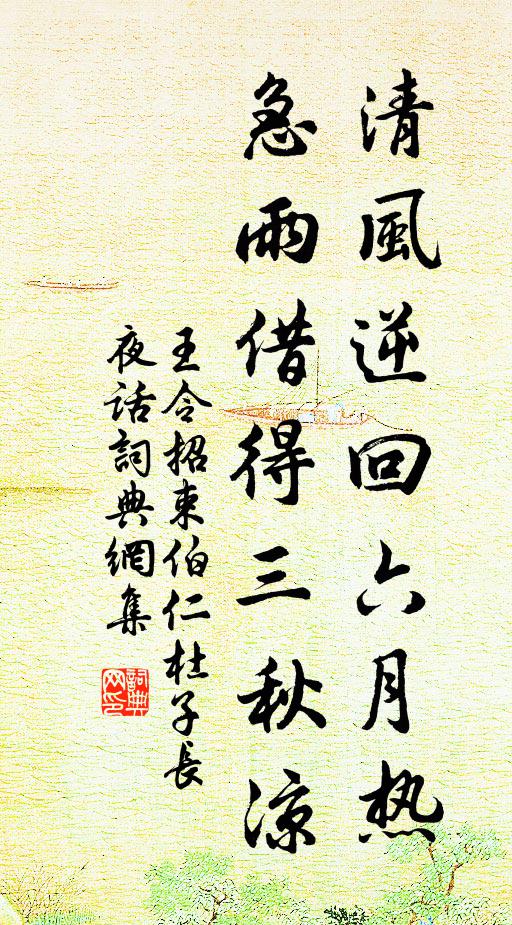 清風逆回六月热
急雨借得三秋凉
王令招束伯仁杜子長
夜話詞典網集
詞典
网印